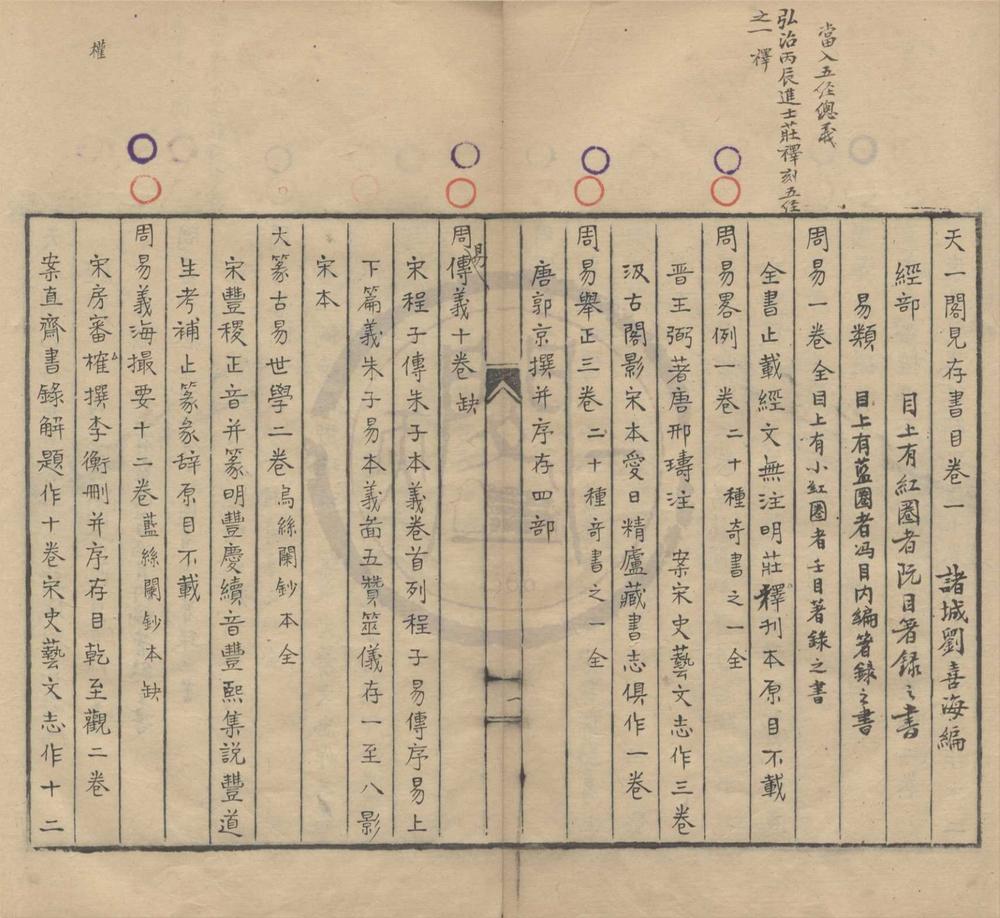 當入五经總義
弘治丙辰進士莊襗刻五经
之一 襗
天一閣見存書目卷一 諸城劉喜海編
經部 目上有紅圈者阮目著録之書
易類 目上有藍圈者馮目內編著錄之書
周易一卷全 目上有小紅圈者壬目著錄之書
全書止載經文無注明莊釋刊本原目不載
周易畧例一卷二十種奇書之一全
晉王弼著唐邢璹注 案宋史藝文志作三卷
汲古閣影宋本愛日精廬藏書志俱作一卷
周易舉正三卷二十種奇書之一全
唐郭京撰并序存四部
周易傳義十卷缺
宋程子傳朱子本義卷首列程子易傳序易上
下篇義朱子易本義啚五贊筮儀存一至八影
宋本
大篆古易世學二卷烏絲闌鈔本全
宋豐稷正音并篆明豐慶續音豐熙集說豐道
生考補止篆彖辞原目不載
周易義海撮要十二卷藍絲闌鈔本缺
宋房審榷撰李衡刪并序存目乾至觀二卷
案直齋書錄解題作十卷宋史藝文志作十二
權
一